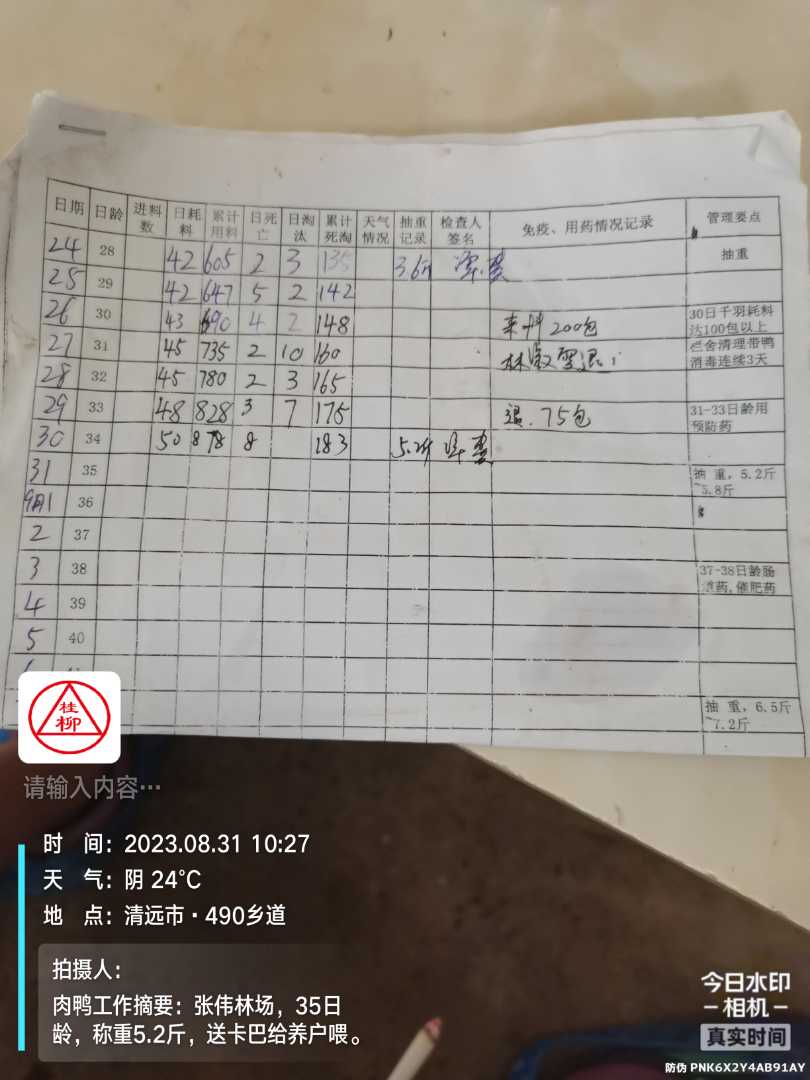 日期 日龄 进料数 日耗料 累计用料 日死亡 日淘汰 累计死淘 天气情况 抽重记录 检查人签名 免疫、用药情况记录 管理要点
24 28 42 605 2 3 135 3.6斤 抽重
25 29 42 647 5 2 142
26 30 43 690 4 2 148 来料200包 30日千羽耗料达100包以上
27 31 45 735 2 10 160 栏舍清理带鸭消毒连续3天
28 32 45 780 2 3 165
29 33 48 828 3 7 175 退.75包 31-33日龄用预防药
30 34 50 878 8 183 5.2斤
31 35 抽重，5.2斤~5.8斤
9月1 36
2 37
3 38 37-38日龄肠道药,催肥药
4 39
5 40
抽重，6.5斤~7.2斤
桂柳
请输入内容…
时 间：2023.08.31 10:27
天 气：阴 24℃
地 点：清远市·490乡道
拍摄人：
肉鸭工作摘要：张伟林场，35日
龄，称重5.2斤，送卡巴给养户喂。
今日水印
相机
真实时间
防伪 PNK6X2Y4AB91AY